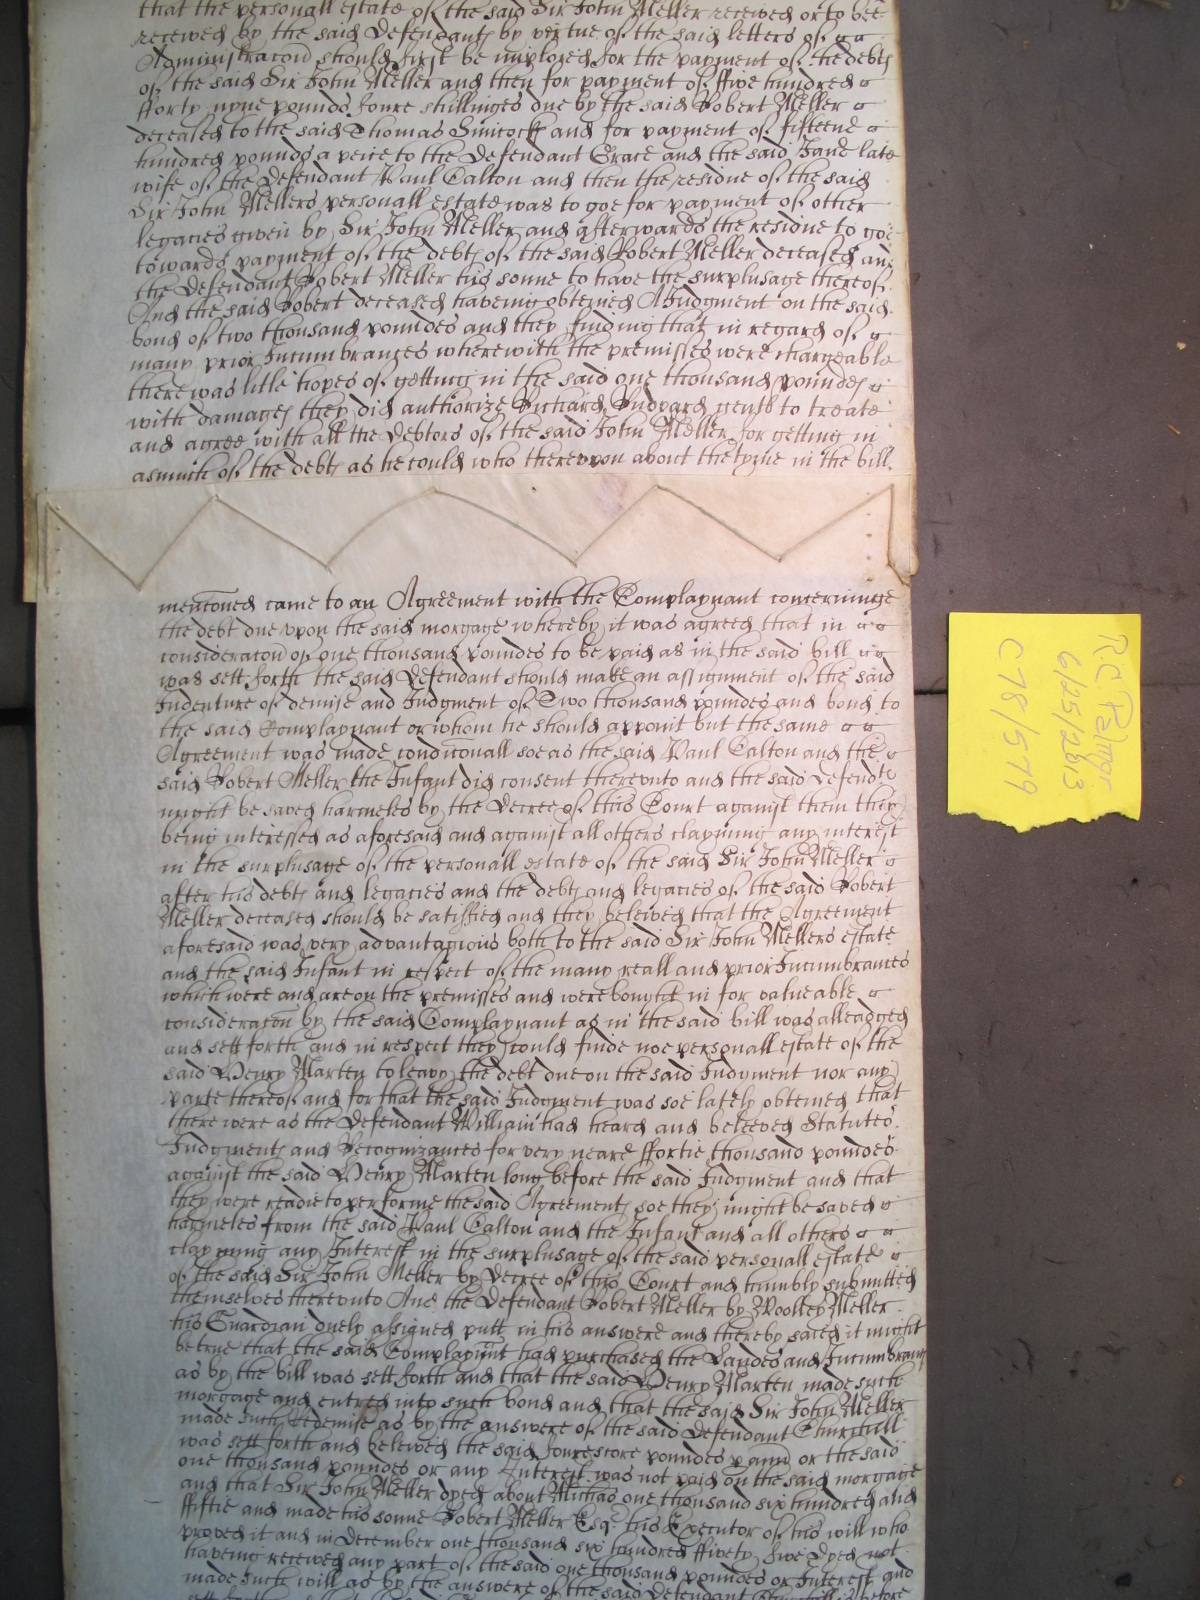 that the personall estate of the said Sir John Meller received or to bee
received by the said Defendants by vertue of the said letters of
Administracon should first be imployed for the payment of the debts
of the said Sir John Meller and then for payment of ffive hundred
fforty nyne pounds foure shillinges due by the said Robert Meller
deceased to the said Thomas and for payment of fifteene
hundred pounds a peice to the Defendant Grace and the said Jane late
wife of the Defendant Paul Calton and then the residue of the said
Sir John Mellers personall estate was to goe for payment of other
legacies given by Sir John Meller and afterwards the residue to goe
towards payment of the debts of the said Robert Meller deceased and
the Defendant Robert Meller his sonne to have the surplusage thereof
And the said Robert deceased haveing obteined A Judgment on the said
bond of two thousand poundes and they finding that in regard of
many prior Incumbrances wherewith the premisses were chargeable
there was litle hopes of getting in the said one thousand poundes
with damages they did authorize Richard gent to treate
and agree with all the Debtors of the said John Meller for getting in
asmuch of the debts as he could who thereupon about the tyme in the bill
menconed came to an Agreement with the Complaynant concerninge
the debt due upon the said morgage whereby it was agreed that in
consideracon of one thousand poundes to be paid as in the said bill
was sett forth the said Defendant should make an assignment of the said
Indenture of demise and Judgment of Two thousand poundes and bond to
the said Complaynant or whom he should appoint but the same
Agreement was made condiconall soe as the said Paul Calton and the
said Robert Meller the Infant did consent thereunto and the said Defendts
might be saved harmeles by the Decree of this Court against them they
being interessed as aforesaid and against all others clayming any interest
in the surplusage of the personall estate of the said Sir John Meller
after his debts and legacies and the debts and legacies of the said Robert
Meller deceased should be satisfied and they beleived that the Agreement
aforesaid was very advantagious both to the said Sir John Mellers estate
and the said Infant in respect of the many reall and prior Incumbrances
which were and are on the premisses and were bought in for valueable
consideracon by the said Complaynant as in the said bill was alleadged
and sett forth and in respect they could finde noe personall estate of the
said Henry Marten to leavy the debt due on the said Judgment nor any
parte thereof and for that the said Judgment was soe lately obteined that
there were as the Defendant William had heard and beleeved Statutes
Judgments and Recognizances for very neare ffortie thousand poundes
against the said Henry Marten long before the said Judgment and that
they were readie to performe the said Agreement soe they might be saved
harmeles from the said Paul Calton and the Infant and all others
clayming any Interest in the surplusage of the said personall estate
of the said Sir John Meller by Decree of this Court and humbly submitted
themselves thereunto And the Defendant Robert Meller by Woolley Meller
his Guardian duely assigned putt in his answere and thereby saied it might
be true that the said Complaynant had purchased the Landes and Incumbrances
as by the bill was sett forth and that the said Henry Marten made such
morgage and entred into such bond and that the said Sir John Meller
made such Redemise as by the answere of the said Defendant Churchill
was sett forth and beleived the said fourescore poundes p annu or the said
one thousand poundes or any Interest was not paid on the said morgage
and that Sir John Meller dyed about Michas one thousand six hundred and
ffiftie and made his sonne Robert Meller Esqr his Executor of his will who
proved it and in December one thousand six hundred ffivety five dyed not
haveing received any part of the said one thousand poundes or Interest and
made such will as by the answere of the said Defendant
R.C. Palmer
6/25/2013
C78/579